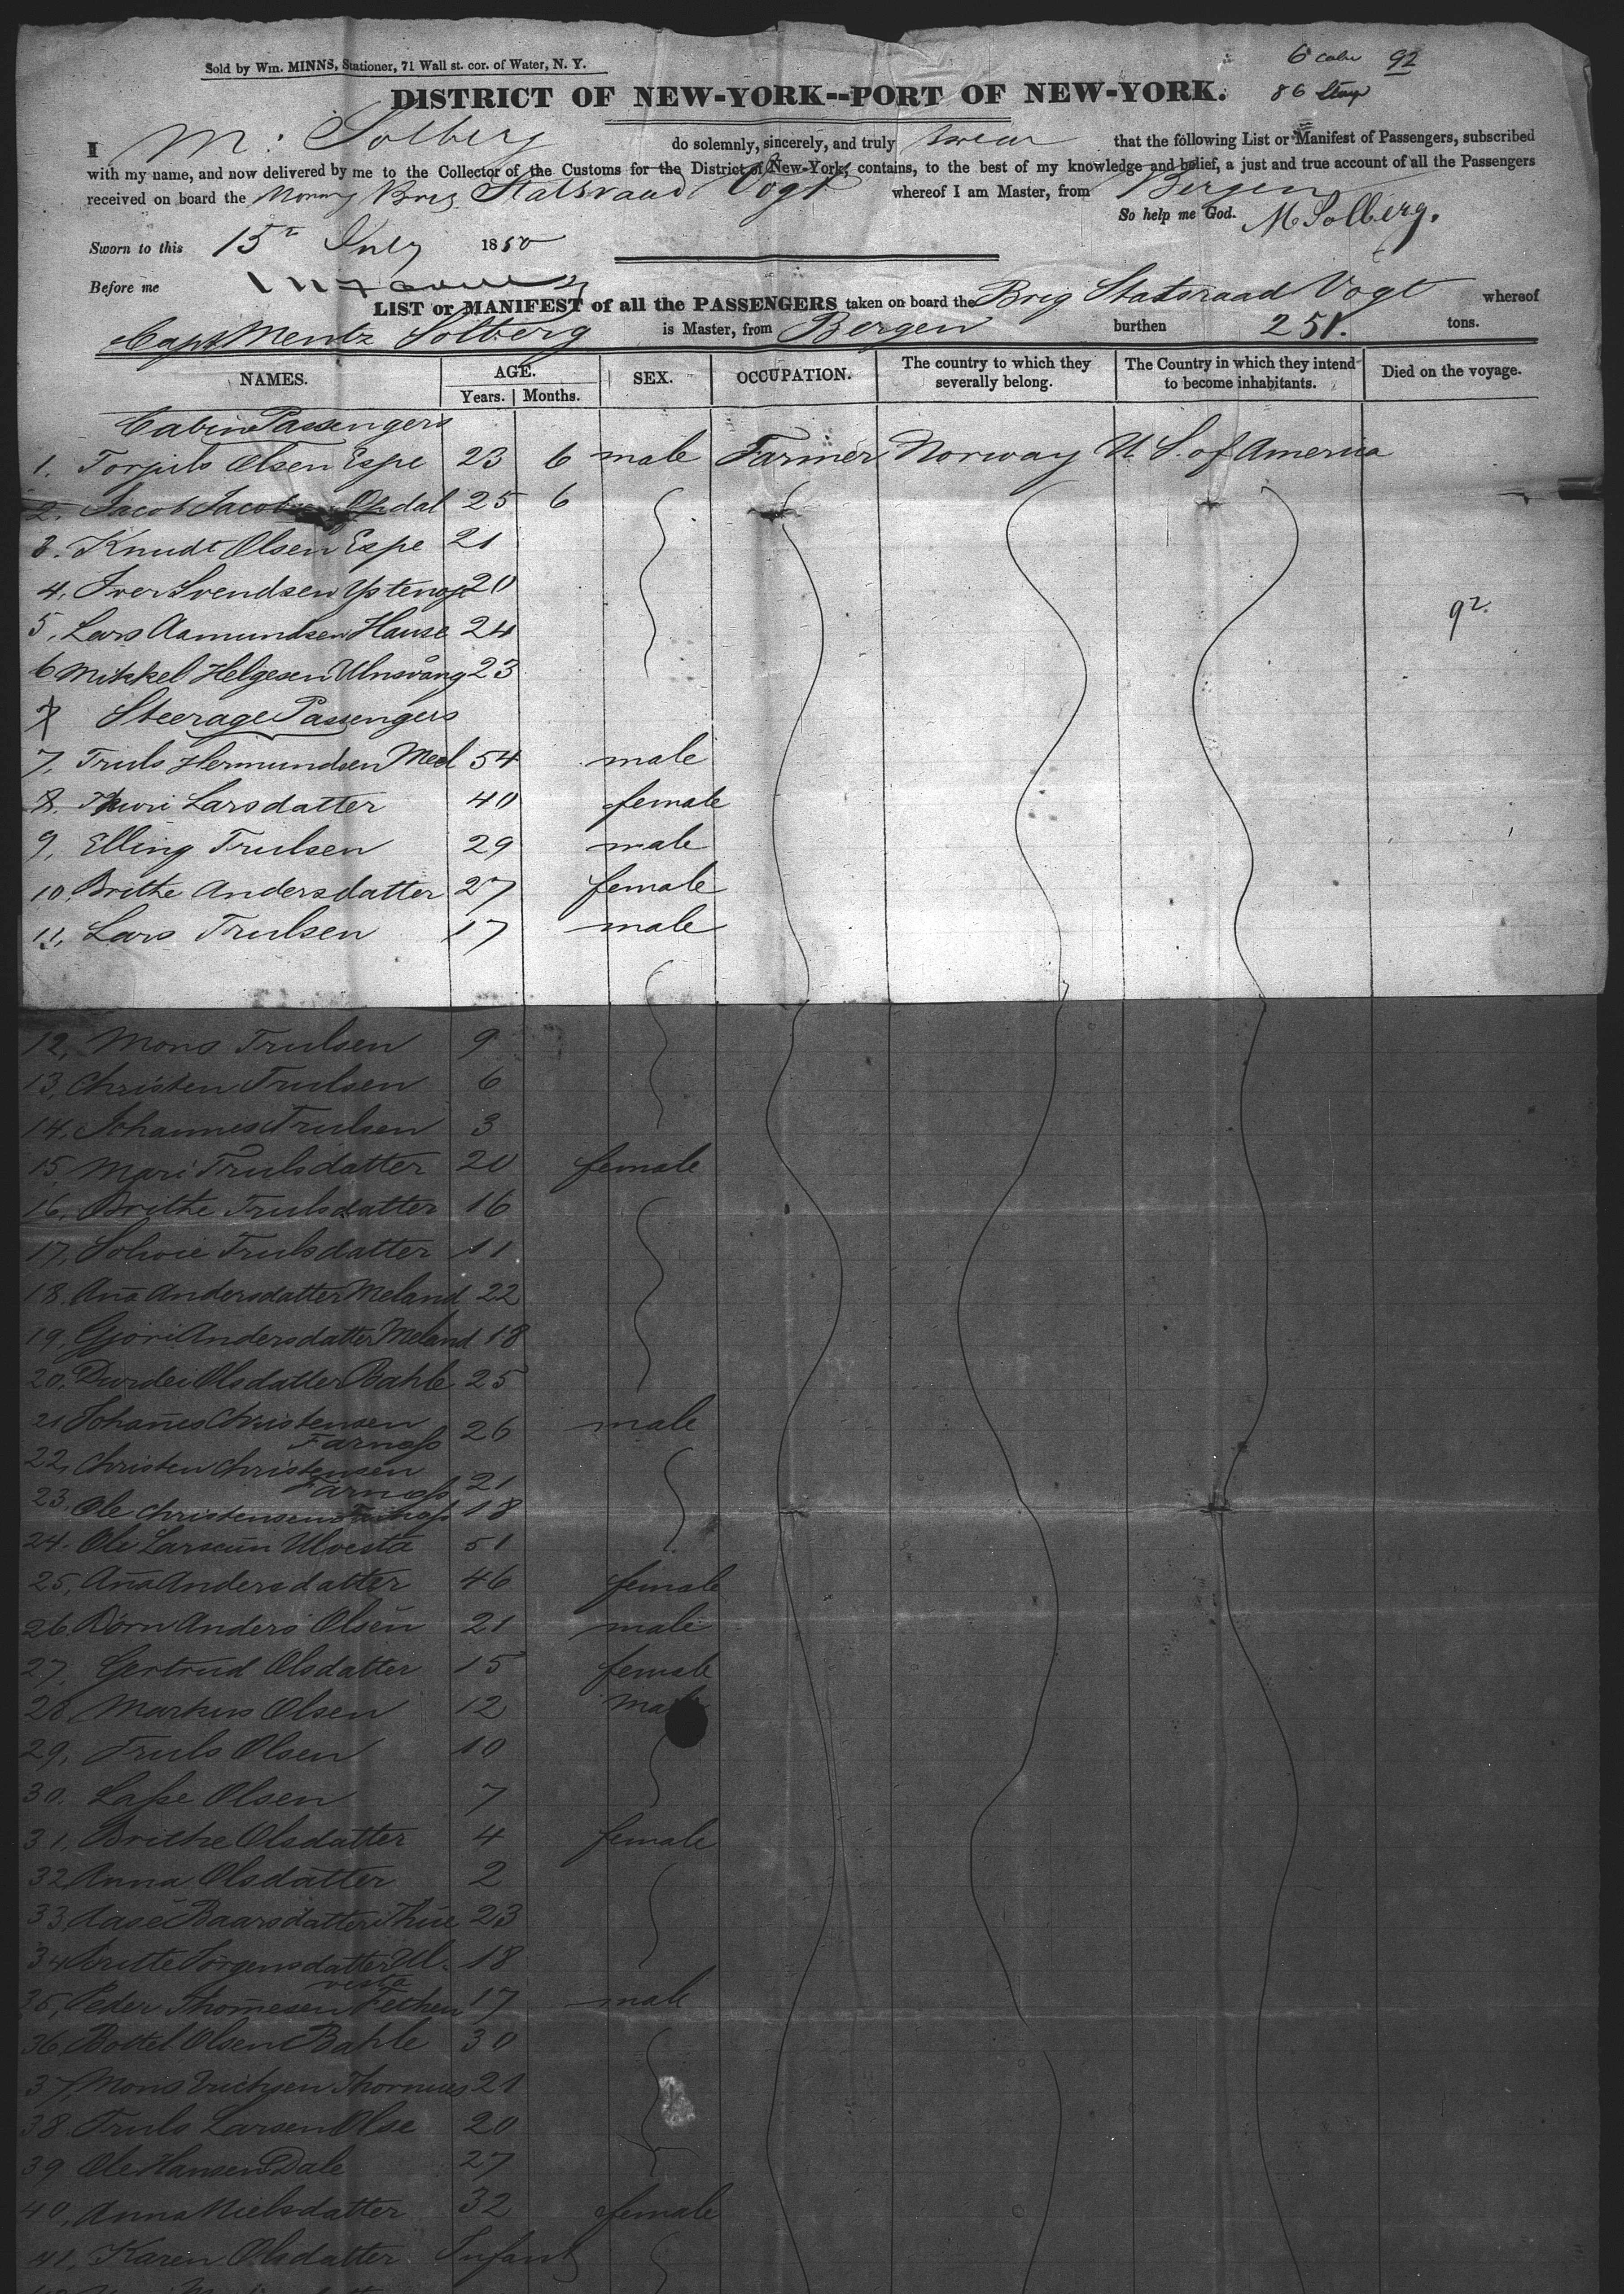 Sold by Wm. MINNS, Stationer, 71 Wall st. cor. of Water, N. Y.
6 cabn 92
DISTRICT OF NEW-YORK--PORT OF NEW-YORK.
86 Steng
I M. Solberg do solemnly, sincerely, and truly swear that the following List or Manifest of Passengers, subscribed
with my name, and now delivered by me to the Collector of the Customs for the District of New-York, contains, to the best of my knowledge and belief, a just and true account of all the Passengers
received on board the Brig Statsraad Vogt whereof I am Master, from Bergen
So help me God. M Solberg.
Sworn to this 15th July 1850
Before me
LIST or MANIFEST of all the PASSENGERS taken on board the Brig Statsraad Vogt whereof
Capt Mentz Solberg is Master, from Bergen burthen 251. tons.
NAMES. AGE. Years. Months. SEX. OCCUPATION. The country to which they severally belong. The Country in which they intend to become inhabitants. Died on the voyage.
Cabin Passengers
1. Torjuls Olsen Espe 23 6 male Farmer Norway U. S. of America
2. Jacob Jacobsen Opdal 25 6
3. Knudt Olsen Espe 21
4. Iver Svendsen 20
92.
5. Lars Aamundsen Hause 24
6 Mikkel Helgesen Ulnsvång 23
Steerage Passengers
7. Truls Hermundsen Meel 54 male
8. Thuri Larsdatter 40 female
9. Elling Trulsen 29 male
10. Brithe Andersdatter 27 female
11. Lars Trulsen 17 male
12. Mons Trulsen 9
13. Christen Trulsen 6
14. Johannes Trulsen 3
15. Mari Trulsdatter 20 female
16. Brithe Trulsdatter 16
17. Solvie Trulsdatter 11
18. Ana Andersdatter Meland 22
19. Gjøri Andersdatter Meland 18
20. Durdei Olsdatter Bahle 25
21 Johanes Christensen
Farnoss 26 male
22. Christen Christensen
Farnoss 21
23. Ole Christensen Farnoss 18
24. Ole Larsen Ulvesta 51
25. Ana Andersdatter 46 female
26. Børn Anders Olsen 21 male
27. Gertrud Olsdatter 15 female
28 Markus Olsen 12 male
29. Truls Olsen 10
30. Lasse Olsen 7
31. Brithe Olsdatter 4 female
32 Anna Olsdatter 2
33. Aase Baarsdatter Thue 23
34 Britte Jörgensdatter Ul-
vesta 18
35. Peder Thomesen Fethen 17 male
36 Bottel Olsen Bahle 30
37. Mons Erichsen Thornues 21
38 Truls Larsen Olse 20
39 Ole Hansen Dale 27
40. Anna Nielsdatter 32 female
41. Karen Olsdatter Infant